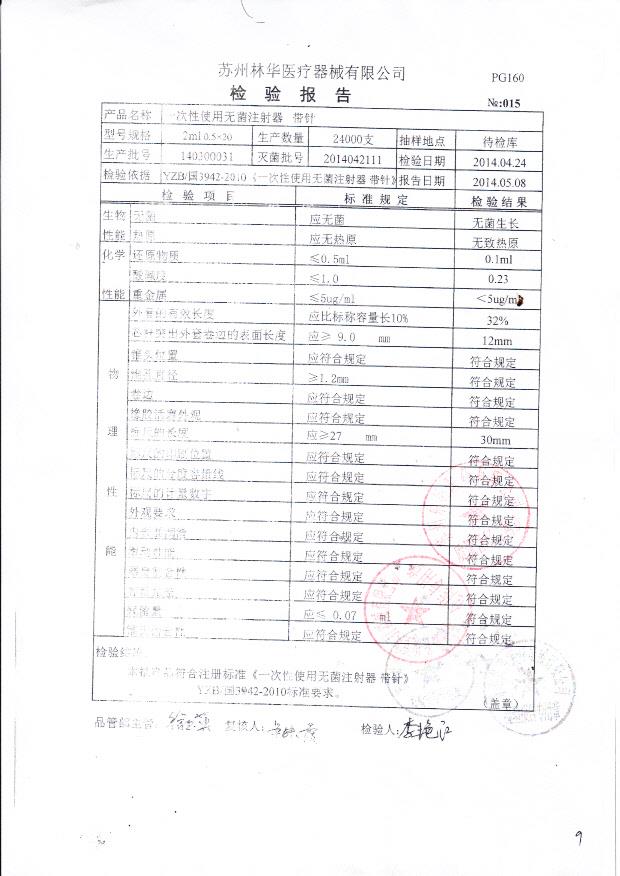 苏州林华医疗器械有限公司
PG160
检 验 报 告
№:015
产品名称 一次性使用无菌注射器 带针
型号规格 2ml 0.5×20 生产数量 24000支 抽样地点 待检库
生产批号 140300031 灭菌批号 2014042111 检验日期 2014.04.24
检验依据 YZB/国3942-2010《一次性使用无菌注射器 带针》 报告日期 2014.05.08
检 验 项 目 标 准 规 定 检验结果
生物 无菌 应无菌 无菌生长
性能 热原 应无热原 无致热原
化学 还原物质 ≤0.5ml 0.1ml
酸碱度 ≤1.0 0.23
性能 重金属 ≤5ug/ml <5ug/ml
外套的有效长度 应比标称容量长10% 32%
芯杆突出外套卷边的表面长度 应≥ 9.0 mm 12mm
锥头位置 应符合规定 符合规定
物 锥孔直径 ≥1.2mm 符合规定
卷边 应符合规定 符合规定
橡胶活塞外观 应符合规定 符合规定
理 标尺的长度 应≥27 mm 30mm
标尺的印刷位置 应符合规定 符合规定
标尺的刻度容量线 应符合规定 符合规定
性 标尺的计量数字 应符合规定 符合规定
外观要求 应符合规定 符合规定
应符合规定 符合规定
能 滑动性能 应符合规定 符合规定
应符合规定 符合规定
应符合规定 符合规定
残留量 应≤ 0.07 ml 符合规定
应符合规定 符合规定
检验结论:
本批产品符合注册标准《一次性使用无菌注射器 带针》
YZB/国3942-2010标准要求。
(盖章)
品管部主管: 复核人: 检验人: 李艳红
9